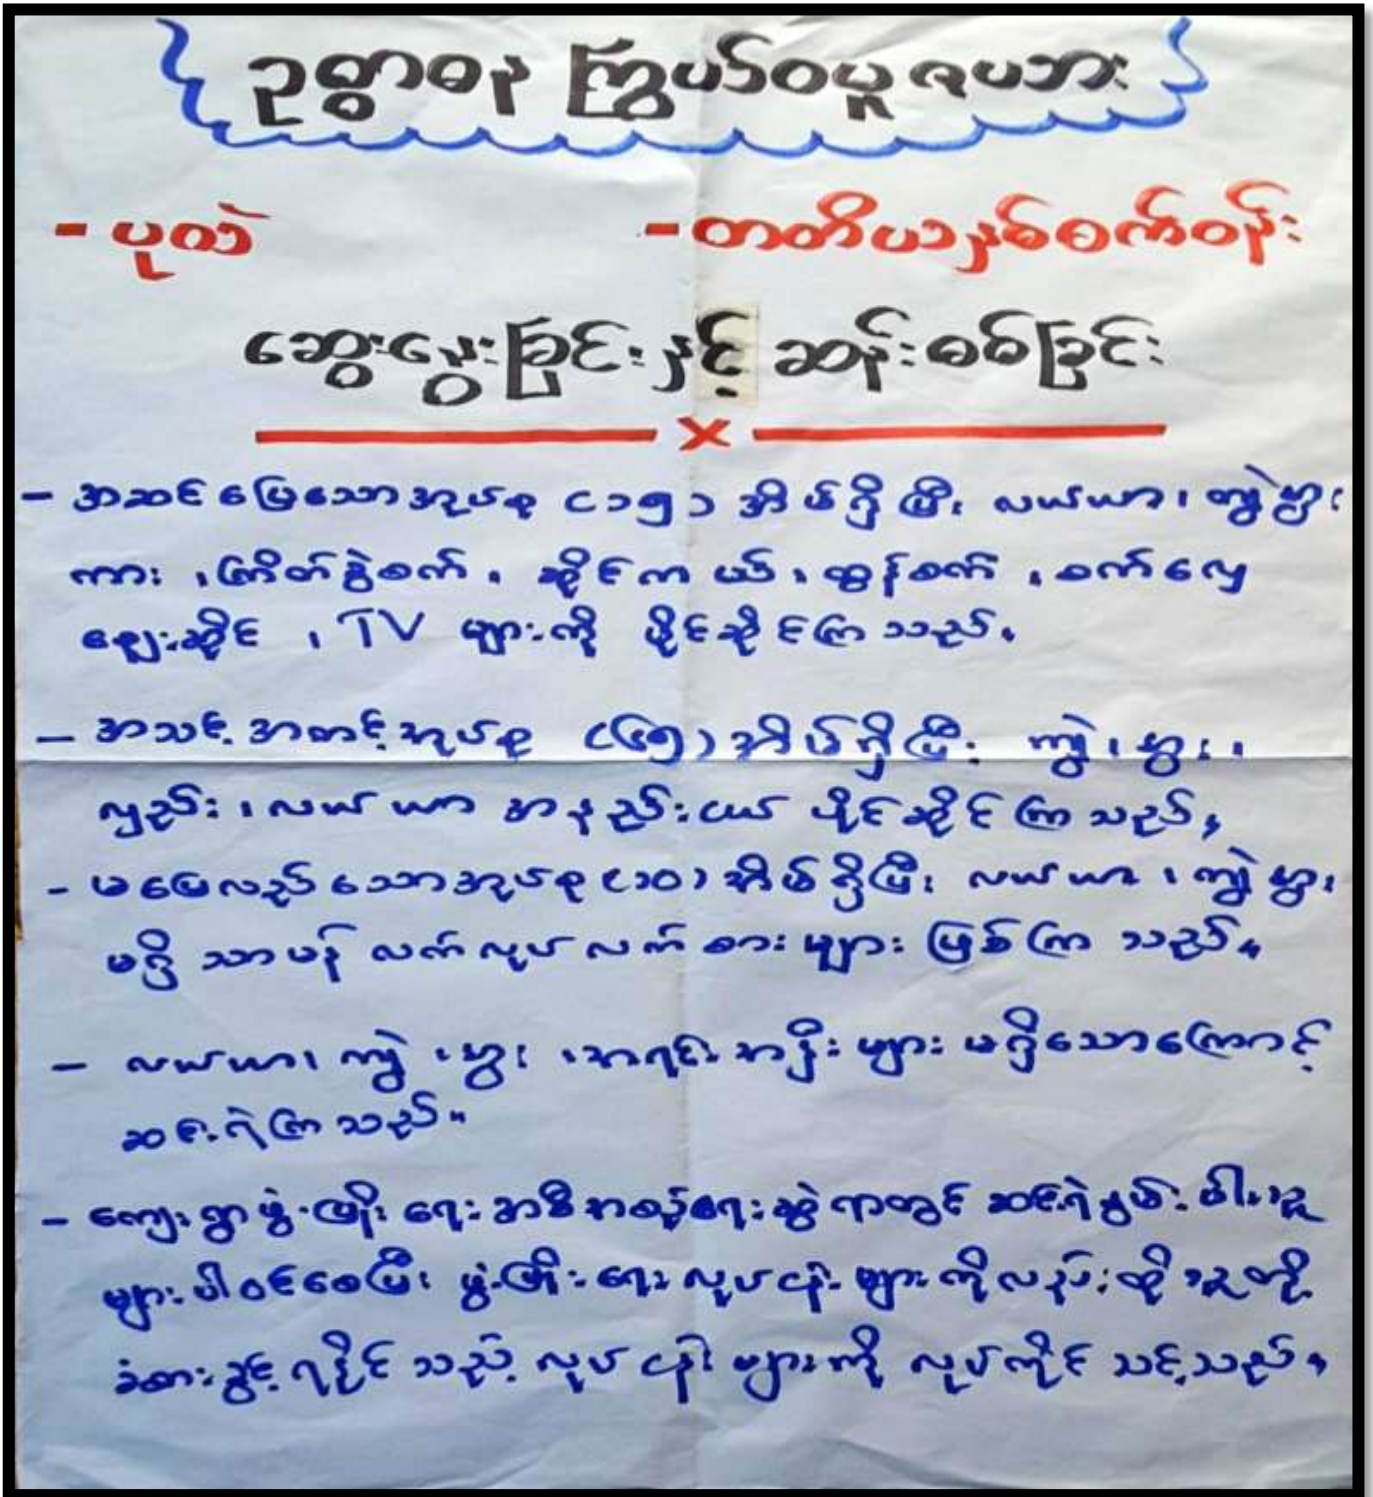 ဥစ္စာဓန ကြွယ်ဝမှုဇယား
- ပုလဲ - တတိယနှစ်စက်ဝန်း
ဆွေးနွေးခြင်းနှင့် ဆန်းစစ်ခြင်း
x
- အဆင်ပြေသောအုပ်စု (၁၅) အိမ်ရှိပြီး လယ်ယာ၊ ကျွဲနွား
ကား ၊ကြိတ်ခွဲစက် ၊ ဆိုင်ကယ် ၊ ထွန်စက် ၊ စက်လှေ
ဈေးဆိုင် ၊ TV များကို ပိုင်ဆိုင်ကြသည်။
- အသင့်အတင့်အုပ်စု (၆၅) အိမ်ရှိပြီး ကျွဲ ၊ နွား ၊
လှည်း ၊ လယ်ယာ အနည်းငယ် ပိုင်ဆိုင်ကြသည်။
- မပြေလည်သောအုပ်စု (၁၀) အိမ်ရှိပြီး လယ်ယာ ၊ ကျွဲနွား
မရှိ သာမန် လက်လုပ်လက်စားများ ဖြစ်ကြသည်။
- လယ်ယာ၊ ကျွဲ ၊ နွား ၊ အရင်းအနှီးများ မရှိသောကြောင့်
ဆင်းရဲကြသည်။
- ကျေးရွာဖွံ့ဖြိုးရေးအစီအစဉ်ရေးဆွဲရာတွင် ဆင်းရဲနွမ်းပါးသူ
များပါဝင်စေပြီး ဖွံ့ဖြိုးရေးလုပ်ငန်းများကိုလည်းထိုသူတို့
ခံစားခွင့်ရနိုင်သည့် လုပ်ငန်းများကို လုပ်ကိုင်သင့်သည်။